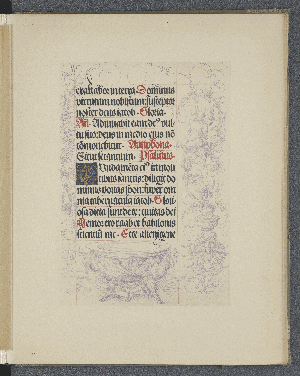 exaltabor in terra. Dominus
virtutum nobiscum: susceptor
noster deus iacob. Gloria.
An. Adiuvabit eam de9 vul-
tu suo: deus in medio eius nō
cōmovebitur. Antiphona.
Sicut letantium. Psalmus.
Fundamēta ei9 in mon-
tibus sanctis: diligit do-
minus portas syon: super om-
nia tabernacula iacob. Glori-
osa dicta sunt de te: civitas dei
Memor ero raab et babilonis
scientiū me. Ecce alienigene